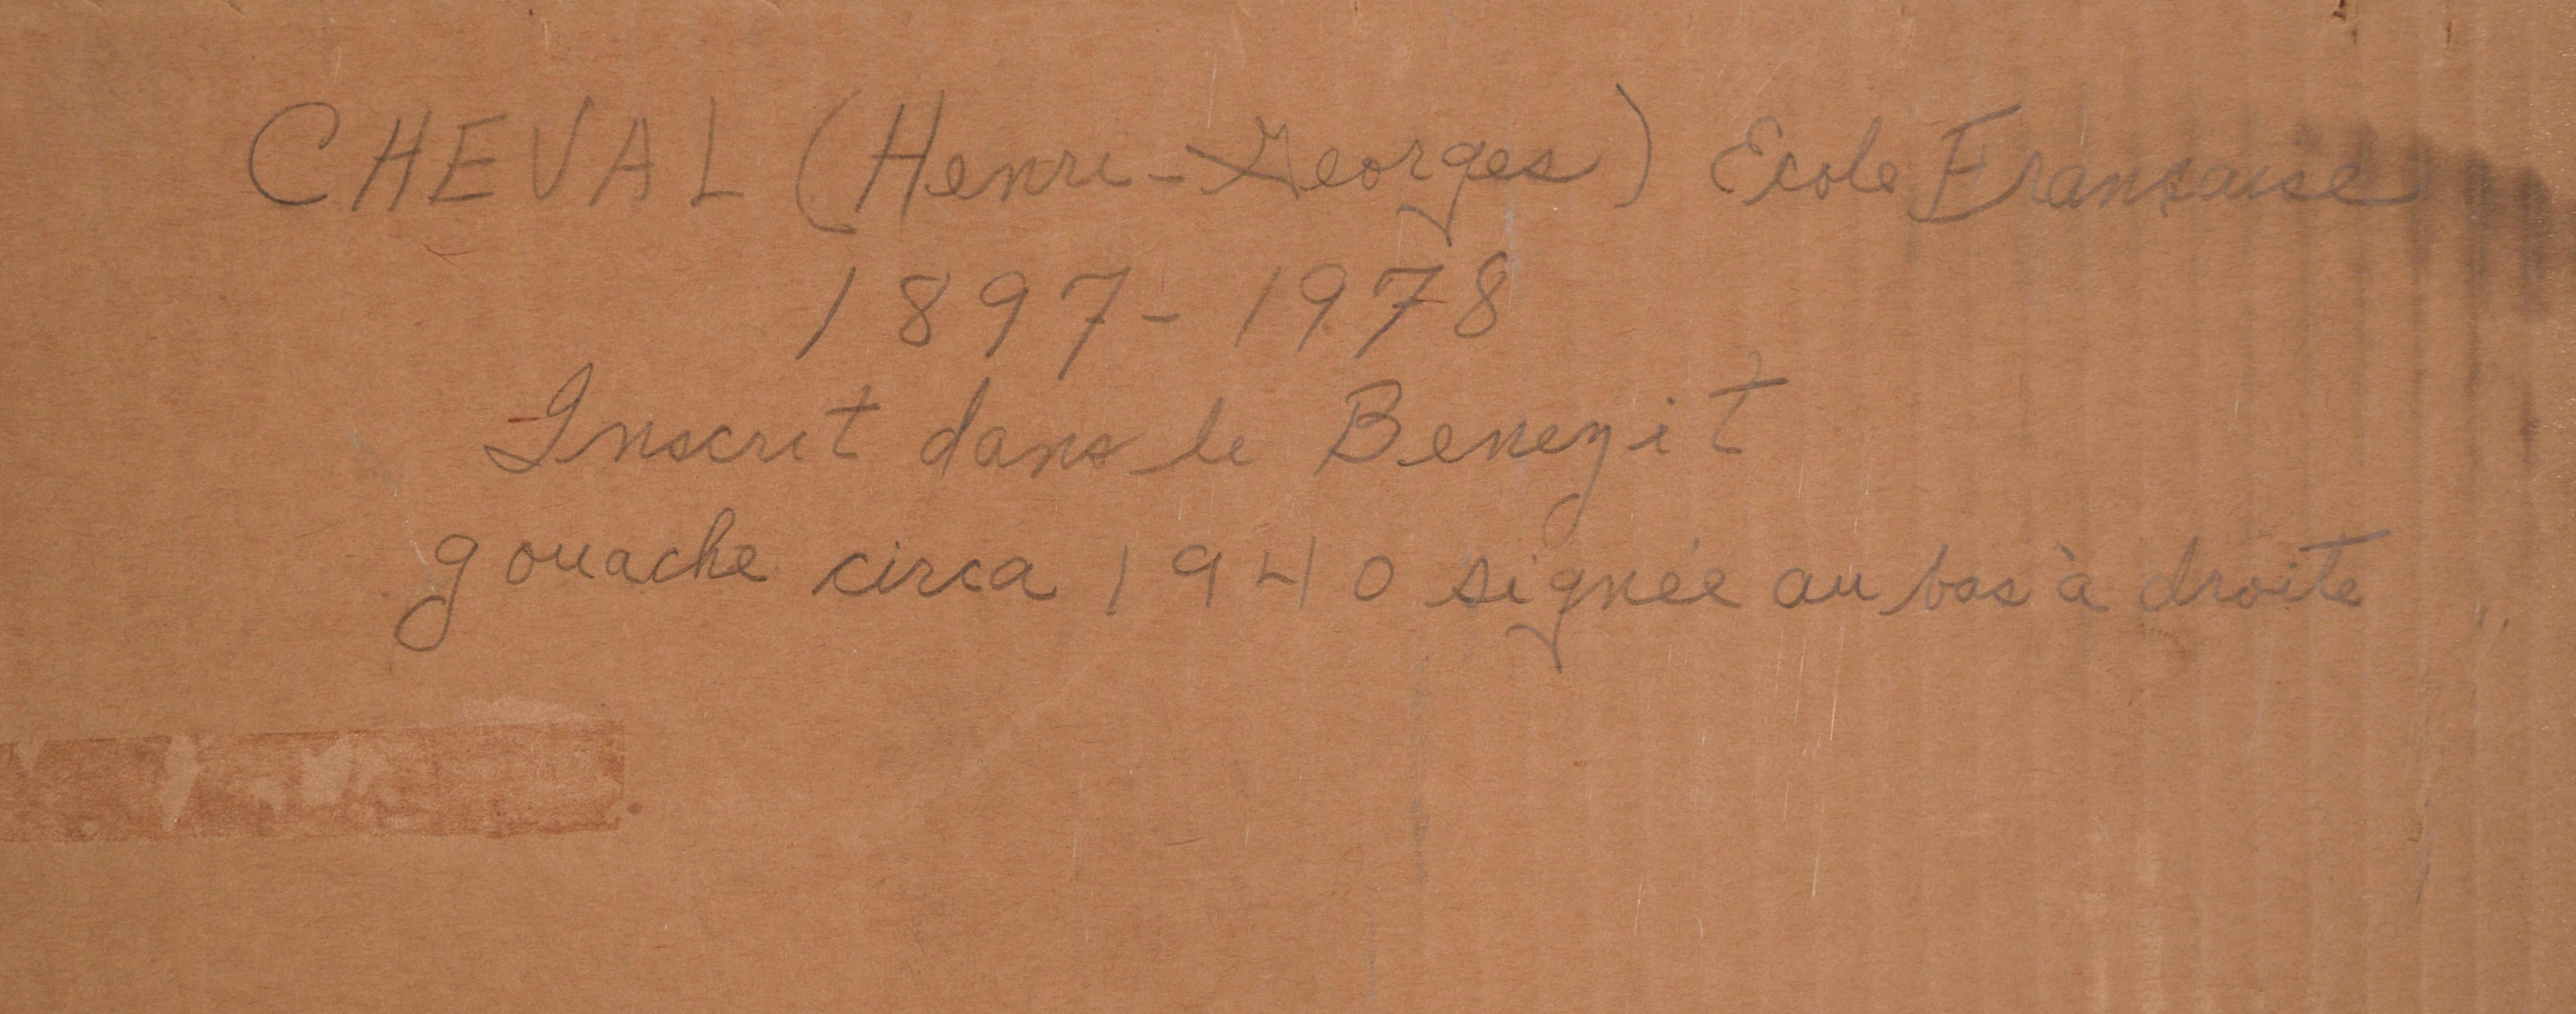 CHEVAL (Henri-Georges) Ecole Française
1897-1978
Inscrit dans le Benezit
gouache circa 1940 signée au bas à droite